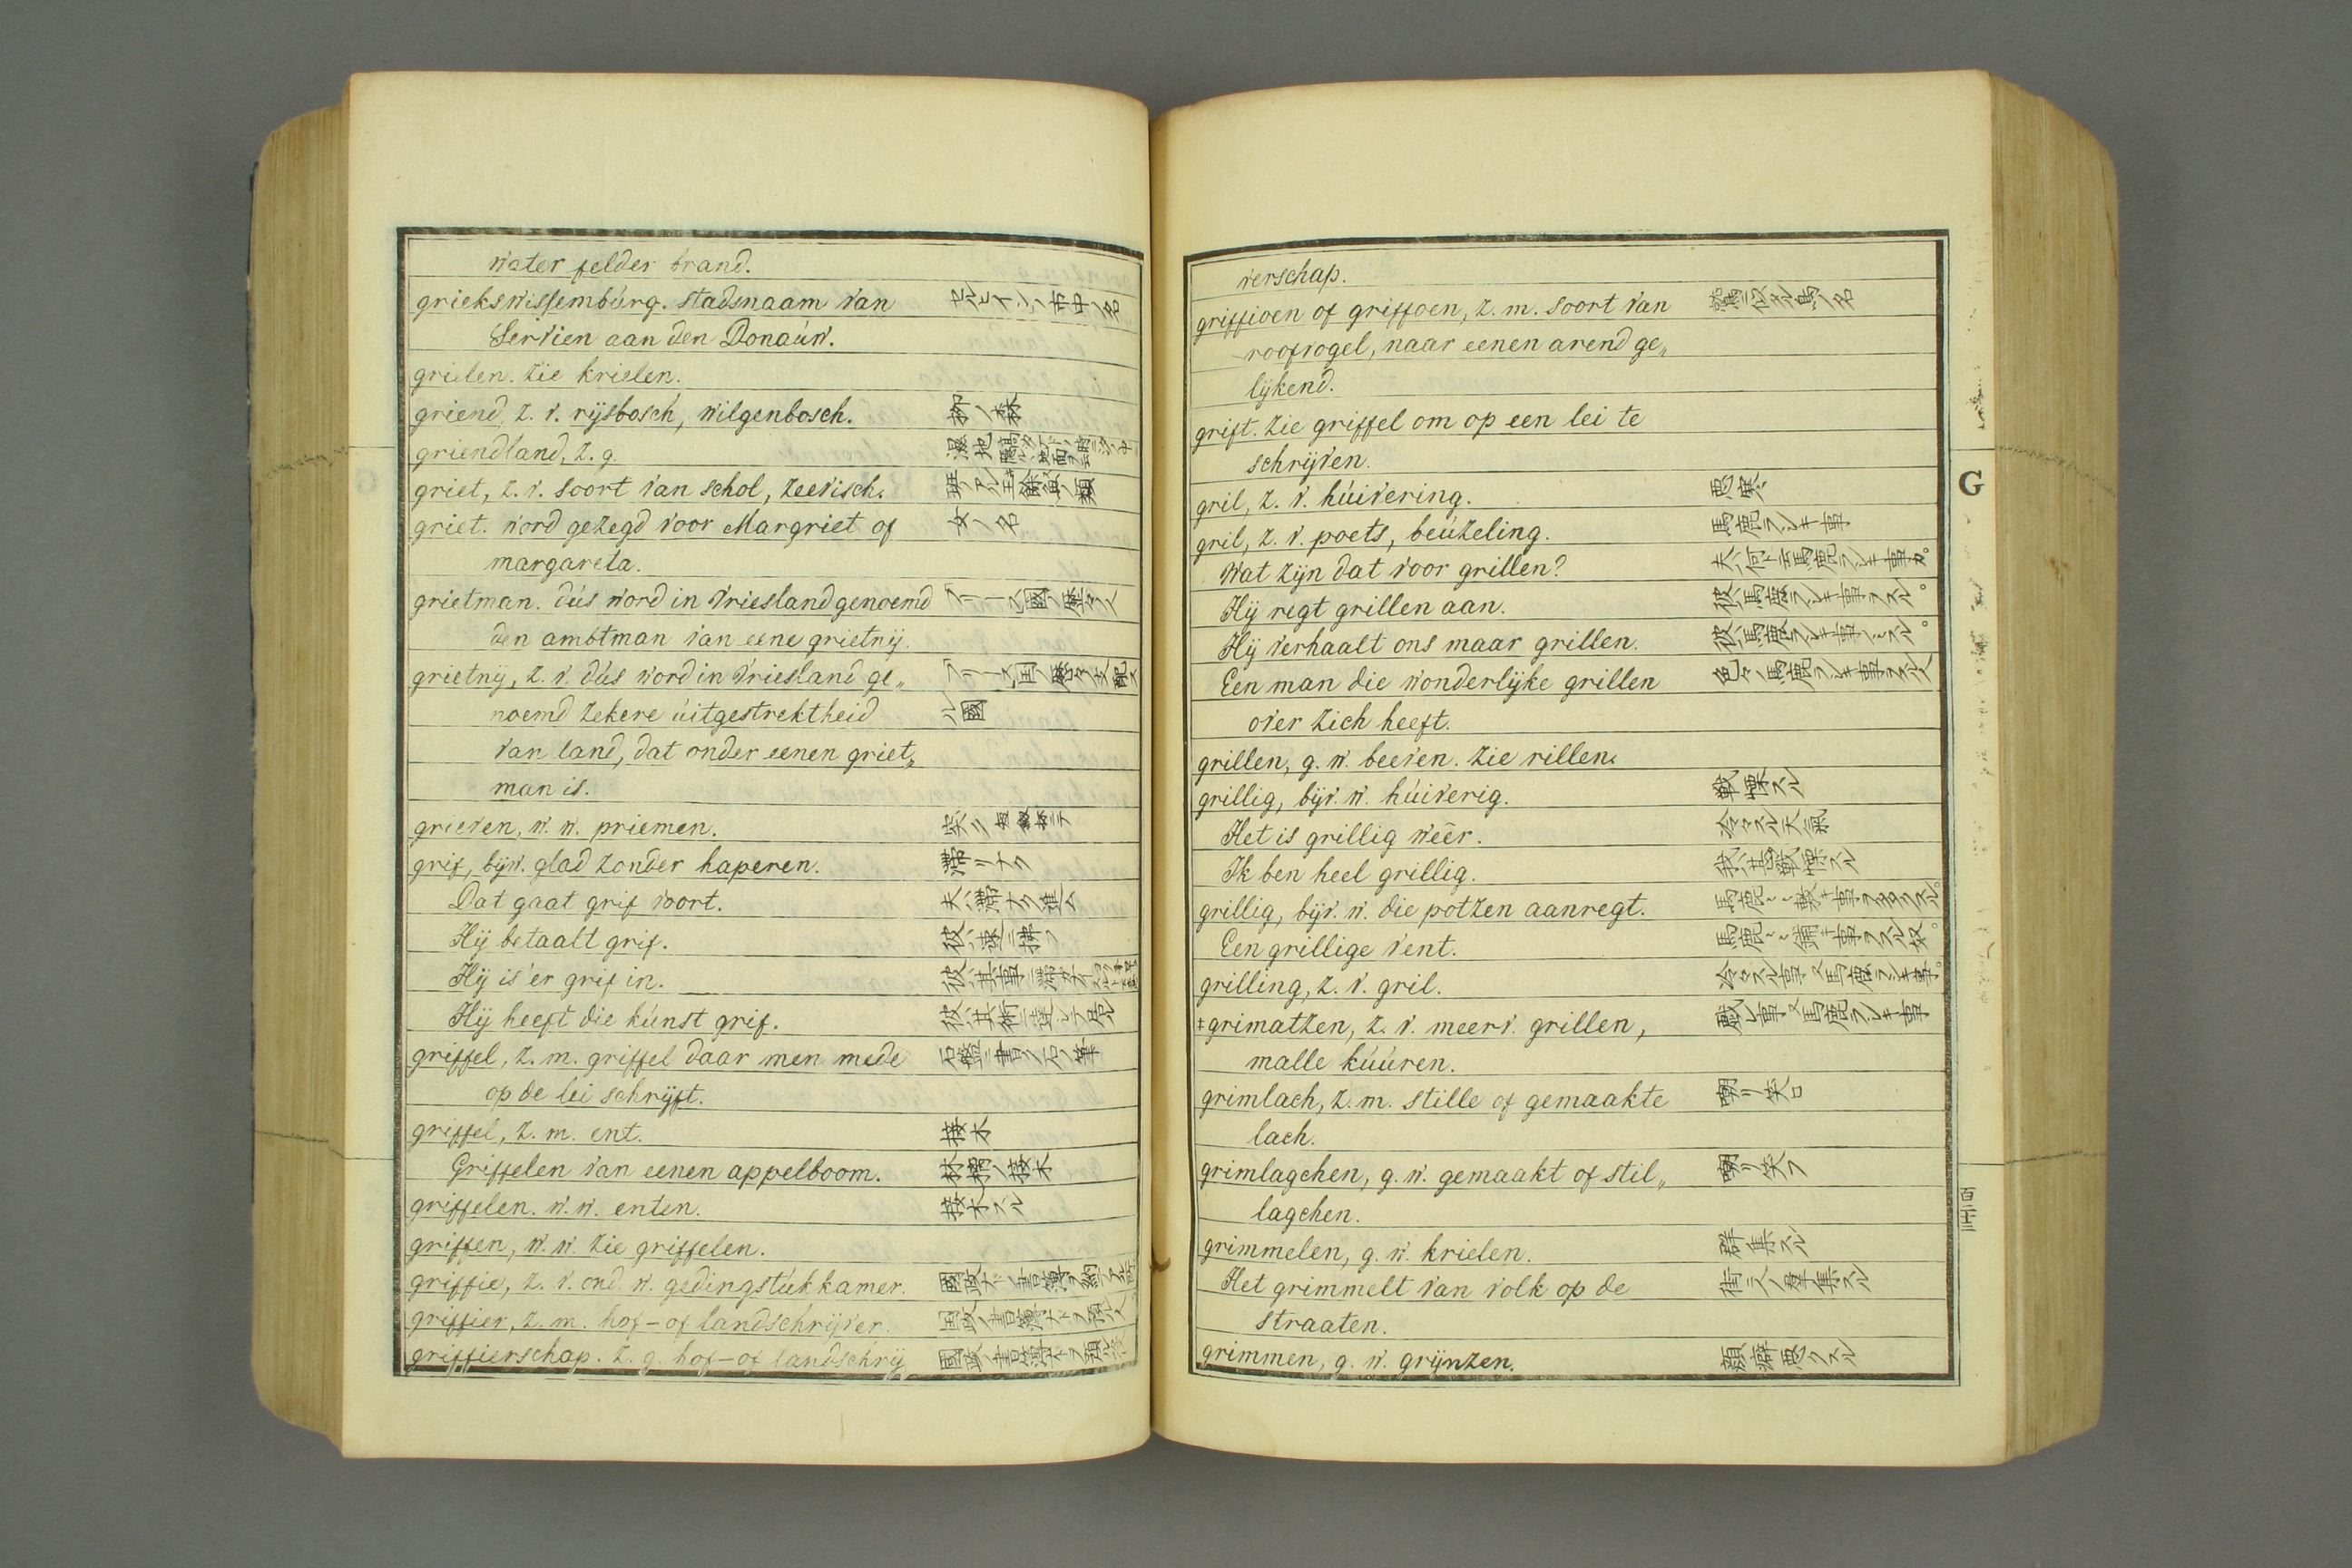 water felder brand.
griekswissembúrg. stadsnaam van セルヒイン ノ 市中ノ名
Servien aan den Donaúw.
grielen. zie krielen.
griend, z. v. rijsbosch, wilgenbosch. 柳ノ森
griendland, z. g. 濕地
griet, z. v. soort van schol, zeevisch.
griet. word gezegd voor Margriet of 女ノ名
margareta.
grietman. dús word in Vriesland genoemd フリース國ノ
den ambtman van eene grietnij.
grietnij, z. v. dús word in Vriesland ge„ フリース国ノ
noemd zekere úitgestrektheid ル國
van land, dat onder eenen griet„
man is.
grieven, w. w. priemen. 突ク
grif, bijw. glad zonder haperen. 滯リナク
Dat gaat grif voort. 夫ハ滯ナク進ム
Hij betaalt grif. 彼ハ速ニ拂フ
Hij is 'er grif in. 彼ハ其事ニ
Hij heeft die kúnst grif. 彼ハ其術ニ達シテ居ル
griffel, z. m. griffel daar men mede 石盤ニ書ク石ノ筆
op de lei schrijft.
griffel, z. m. ent. 接木
Griffelen van eenen appelboom. 林檎ノ接木
griffelen. w. w. enten. 接木スル
griffen, w. w. zie griffelen.
griffie, z. v. ond. w. gedingstúkkamer. 國政ノ書簿ヲ納ル所
griffier, z. m. hof-of landschrijver. 国政ノ書簿
griffierschap. z. g. hof-of landschrij 國政ノ書簿
verschap.
griffioen of griffoen, z. m. soort van 鷲ニ似タル鳥ノ名
roofvogel, naar eenen arend ge„
lijkend.
grift. zie griffel om op een lei te
schrijven.
gril, z. v. húivering. 悪寒
gril, z. v. poets, beúzeling. 馬鹿ラシキ事
Wat zijn dat voor grillen? 夫ハ何ト云馬鹿ラシキ事カ。
Hij regt grillen aan. 彼ハ馬鹿ラシキ事ヲスル。
Hij verhaalt ons maar grillen. 彼ハ馬鹿ラシキ事
Een man die wonderlijke grillen 色々ノ馬鹿ラシキ事ヲスル人
over zich heeft.
grillen, g. w. beeven. zie rillen.
grillig, bijv. w. húiverig. 戦慄スル
Het is grillig weêr. 冷クスル天氣
Ik ben heel grillig. 我ハ甚戦慄スル
grillig, bijv. w. die potzen aanregt. 馬鹿
Een grillige vent. 馬鹿
grilling, z. v. gril. 冷クスル事又馬鹿ラシキ事。
‡grimatzen, z. v. meerv. grillen, 戯レ事又馬鹿ラシキ事
malle kúúren.
grimlach, z. m. stille of gemaakte 嘲リ笑ロ
lach.
grimlagchen, g. w. gemaakt of stil„ 嘲リ笑フ
lagchen.
grimmelen, g. w. krielen. 群集スル
Het grimmelt van volk op de 街ニ人ノ羣集スル
straaten.
grimmen, g. w. grijnzen. 顔癖悪クスル
G